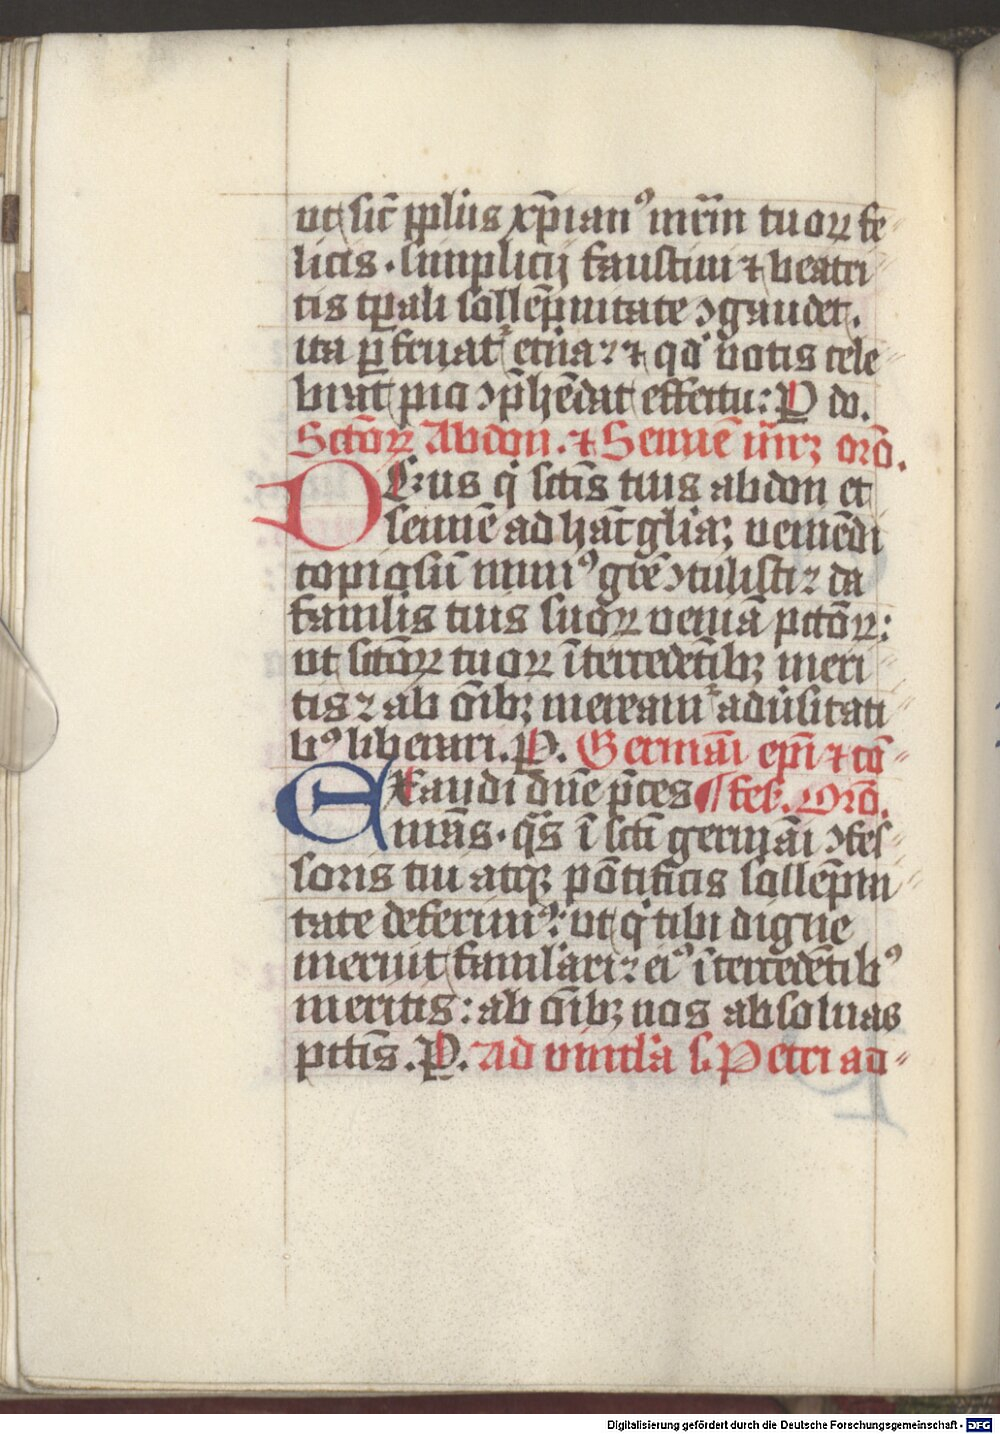 ut sic̄ ꝓpl̄us xp̄ianꝰ mr̄m tuoꝝ fe
licis. simplicij faustini ⁊ beatri
tis tꝑali sollēpnitate ꝯgaudet.
ita ꝑfruatʳ et̄na: ⁊ qd̓ votis cele
brat pia ꝯp̄hēdat effectu: P do.
Sctōꝝ Abdon. ⁊ Sennē mr̄ꝝ orō.
DEus q̓ sctīs tuis abdon et
sennē ad hāc gl̄iaꝫ veniēdi
copiosū munꝰ gr̄e ꝯtulisti: da
famulis tuis suoꝝ veniā pctōꝝ:
ut sctōꝝ tuoꝝ ītercedētibꝫ meri
tis: ab oīb; mereamʳ adūsitati
bꝰ liberari. P. Germāi epī ⁊ cō
EXaudi dn̄e p̄ces ¶ fes. Orō.
nr̄as. qs̄ ī sctī germāi ꝯfes
soris tui atqꝫ pōtificis sollēpni
tate deferimꝰ: ut q̓ tibi digne
meruit famulari: eiꝰ ītercedētibꝰ
meritis: ab oīb; nos absoluas
pctīs. P. Ad vincl̄a s. Petri ad
Digitalisierung gefördert durch die Deutsche Forschungsgemeinschaft - DFG